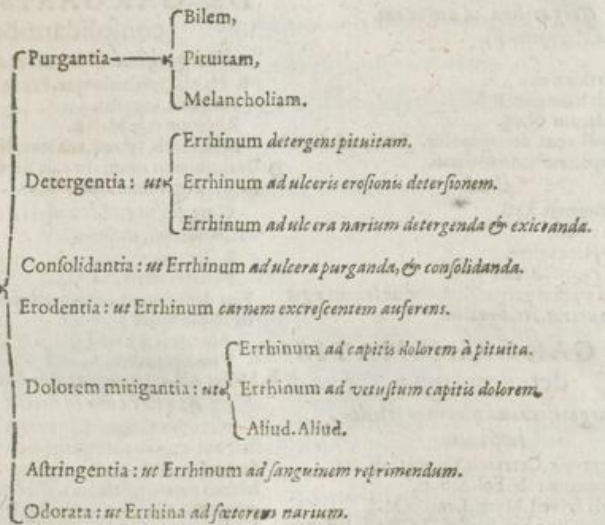 Bilem,
Purgantia
Pituitam,
Melancholiam.
Errhinum detergens pituitam.
Detergentia : ut Errhinum ad ulceris erosionis detersionem.
Errhinum ad ulcera narium detergenda & exiccanda.
Consolidantia : ut Errhinum ad ulcera purganda, & consolidanda.
Erodentia : ut Errhinum carnem excrescentem auferens.
Errhinum ad capitis dolorem à pituita.
Dolorem mitigantia : ut Errhinum ad vetustum capitis dolorem.
Aliud. Aliud.
Astringentia : ut Errhinum ad sanguinem reprimendum.
Odorata : ut Errhina ad fœtorem narium.